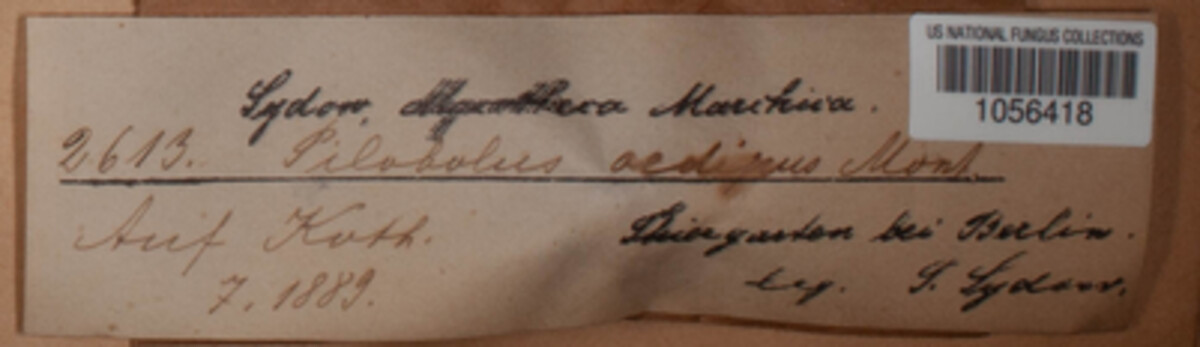 US NATIONAL FUNGUS COLLECTIONS
1056418
Sydow, Marchica.
2613. Pilobolus oedipus Mont.
Auf Koth.
7. 1889.
Thiergarten bei Berlin.
leg. Sydow.